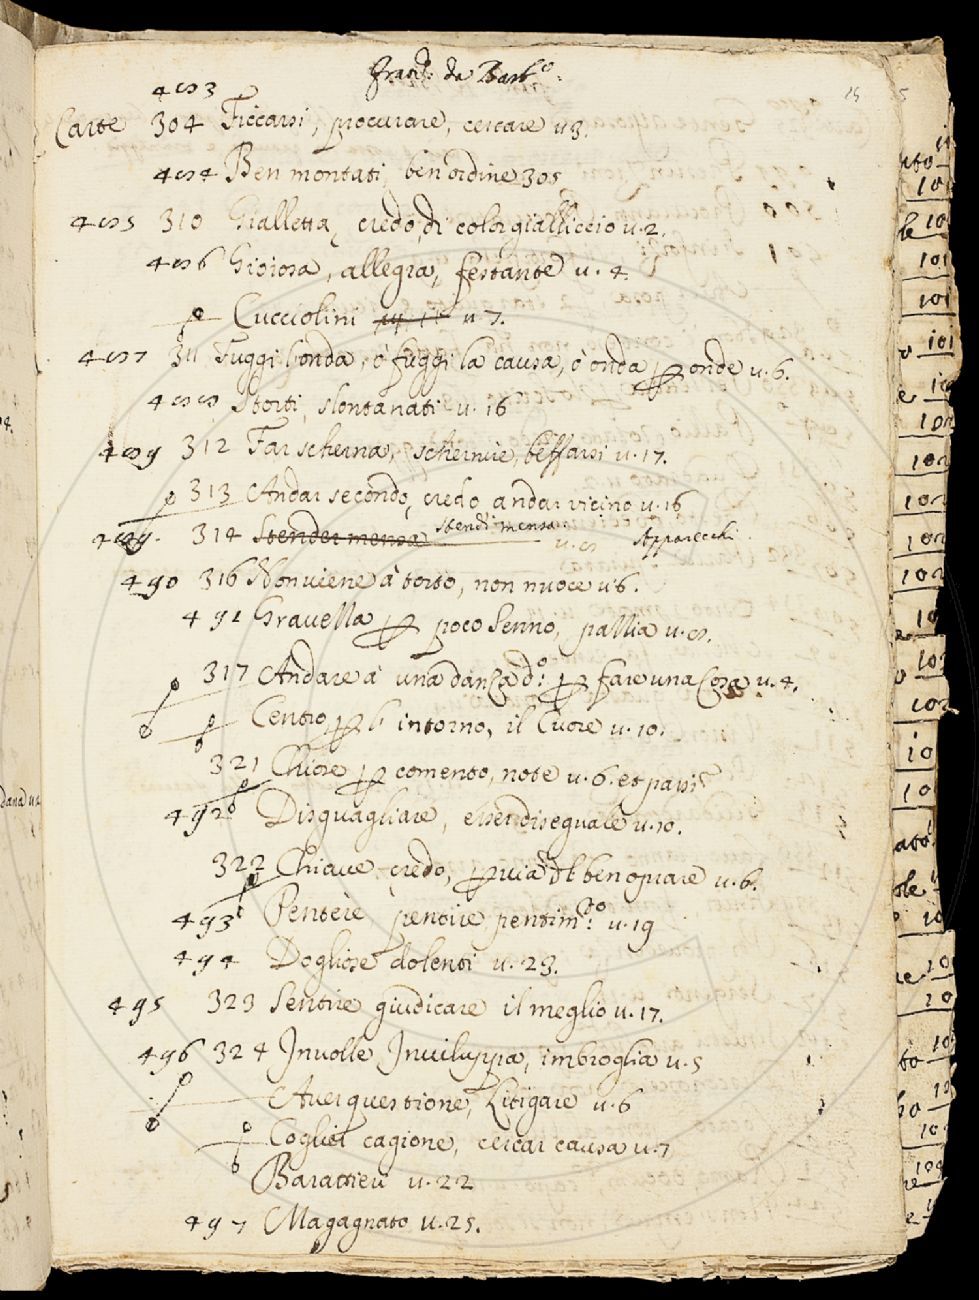 Franc.º da Barb.º
15
483
Carte 304 Ficcarsi, procurare, cercare u3.
484 Ben montati, ben ordine 305
485 310 Gialletta, credo, di color gialliccio u.2.
486 Gioiosa, allegra, festante u.4.
Cucciolini u7.
487 311 Fuggi l'onda, ò fuggi la causa, ò onda onde u.6.
488 Storti, slontanati u.16
489 312 Far scherna, schernire, beffarsi u.17.
313 Andar secondo, credo andar vicino u.16
314 Stender mensa Stendi mensa u.8 Apparecchi
490 316 Non viene à torto, non nuoce u6.
491 Gravella poco senno, pallia u.8.
317 Andare à una danza d.º fare una Cosa u.4.
Centro lì intorno, il Cuore u.10.
321 Chiose comento, note u.6. et pass.
492 Disguagliare, esser diseguale u.10.
322 Chiave credo, via di ben oprare u.6.
493 Pentere, pentire pentim.to u.19
494 Dogliose dolenti u.23.
495 323 Sentire giudicare il meglio u.17.
496 324 Involle Inviluppa, imbroglia u.5
Aver questione, Litigare u.6
Coglier cagione, cercar causa u.7
Barattieri u.22
497 Magagnato u.25.